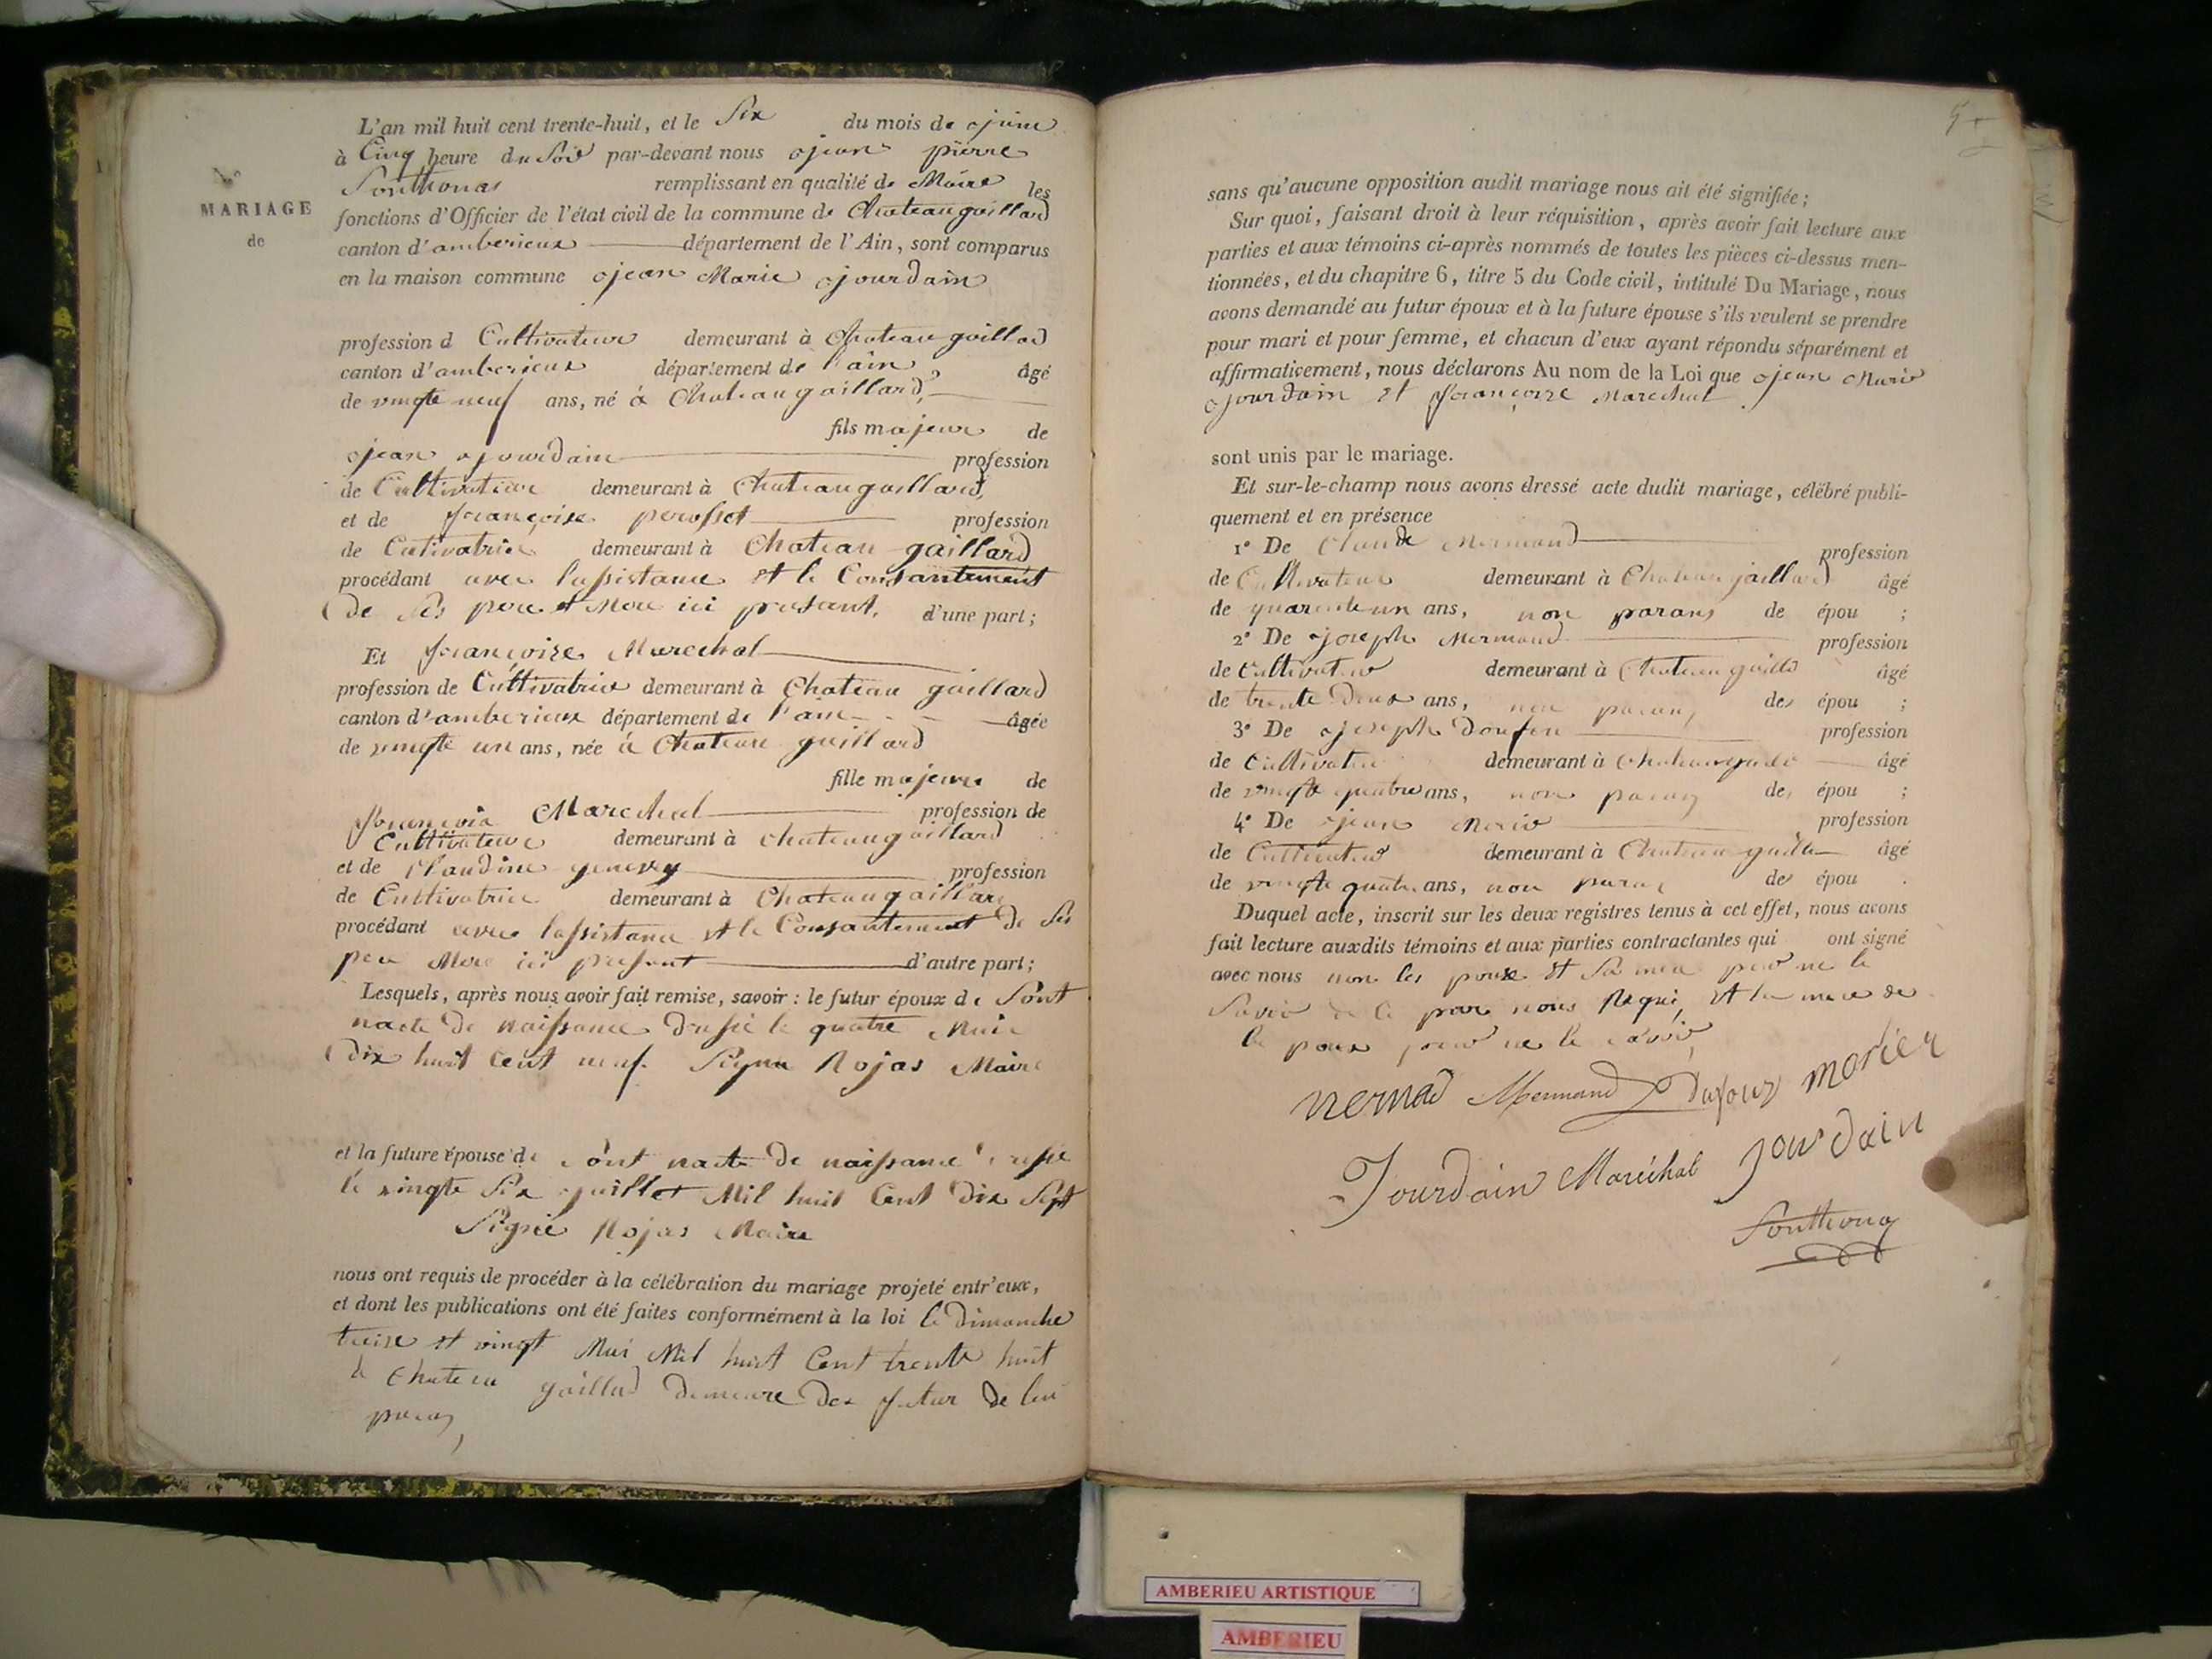 L'an mil huit cent trente-huit, et le Six du mois de juin
à Cinq heure du Soir par-devant nous jean pierre
Sonthonas remplissant en qualité de Maire les
N.º
MARIAGE
de
fonctions d'Officier de l'état civil de la commune de Chateaugaillard
canton d'amberieux département de l'Ain, sont comparus
en la maison commune jean Marie jourdain
profession d Cultivateur demeurant à Chateau gaillard
canton d'amberieux département de l'ain, âgé
de vingte neuf ans, né à Chateaugaillard,
fils majeur de
jean jourdain profession
de Cultivateur demeurant à Chateaugaillard,
et de françoise perosset profession
de Cutivatrice demeurant à Chateau gaillard
procédant avec lassistance et le Consantement
de Ses pere et Mere ici present, d'une part;
Et françoise Marechal
profession de Cultivatrice demeurant à Chateau gaillard
canton d'amberieux département de l'ain âgée
de vingte un ans, née à Chateau gaillard
fille majeure de
françois Marechal profession de
Cultivateur demeurant à Chateaugaillard
et de Claudine genevey profession
de Cultivatrice demeurant à Chateaugaillard
procédant avec lassistance et le Consantement de Ses
pere Mere ici present d'autre part;
Lesquels, après nous avoir fait remise, savoir: le futur époux de Sont
nacte de naissance dressé le quatre Mai
dix huit Cent neuf. Signé Rojas Maire
et la future épouse de sont nacte de naissance dressé
le vingte Six juillet Mil huit Cent dix Sept
Signé Rojas Maire
nous ont requis de procéder à la célébration du mariage projeté entr'eux,
et dont les publications ont été faites conformément à la loi le dimanche
treize et vingt Mai Mil huit Cent trente huit
à Chateau gaillard demeure des futur de leur
paran,
sans qu'aucune opposition audit mariage nous ait été signifiée;
Sur quoi, faisant droit à leur réquisition, après avoir fait lecture aux
parties et aux témoins ci-après nommés de toutes les pièces ci-dessus men-
tionnées, et du chapitre 6, titre 5 du Code civil, intitulé Du Mariage, nous
avons demandé au futur époux et à la future épouse s'ils veulent se prendre
pour mari et pour femme, et chacun d'eux ayant répondu séparément et
affirmativement, nous déclarons Au nom de la Loi que jean Marie
jourdain et françoise Marechal
sont unis par le mariage.
Et sur-le-champ nous avons dressé acte dudit mariage, célébré publi-
quement et en présence
1º De Claude Mermand profession
de Cultivateur demeurant à Chateau gaillard âgé
de quarente un ans, non parans de épou ;
2º De joseph Mermand profession
de Cultivateur demeurant à Chateau gailld âgé
de trente deux ans, non paran, des épou ;
3º De joseph profession
de Cultivateur demeurant à âgé
de vingte quatre ans, non paran des épou ;
4º De jean profession
de Cultivateur demeurant à Chateau âgé
de vingte quatre ans, non paran des épou .
Duquel acte, inscrit sur les deux registres tenus à cet effet, nous avons
fait lecture auxdits témoins et aux parties contractantes qui ont signé
avec nous non les pouse et Sa mere pour ne le
Savoir de ce par nous Requi, et la mere de
le poux pour ne le savoir,
nermad Mermand Dufour morier
Jourdain Maréchal Jourdain
Sonthonas
AMBERIEU ARTISTIQUE
AMBERIEU